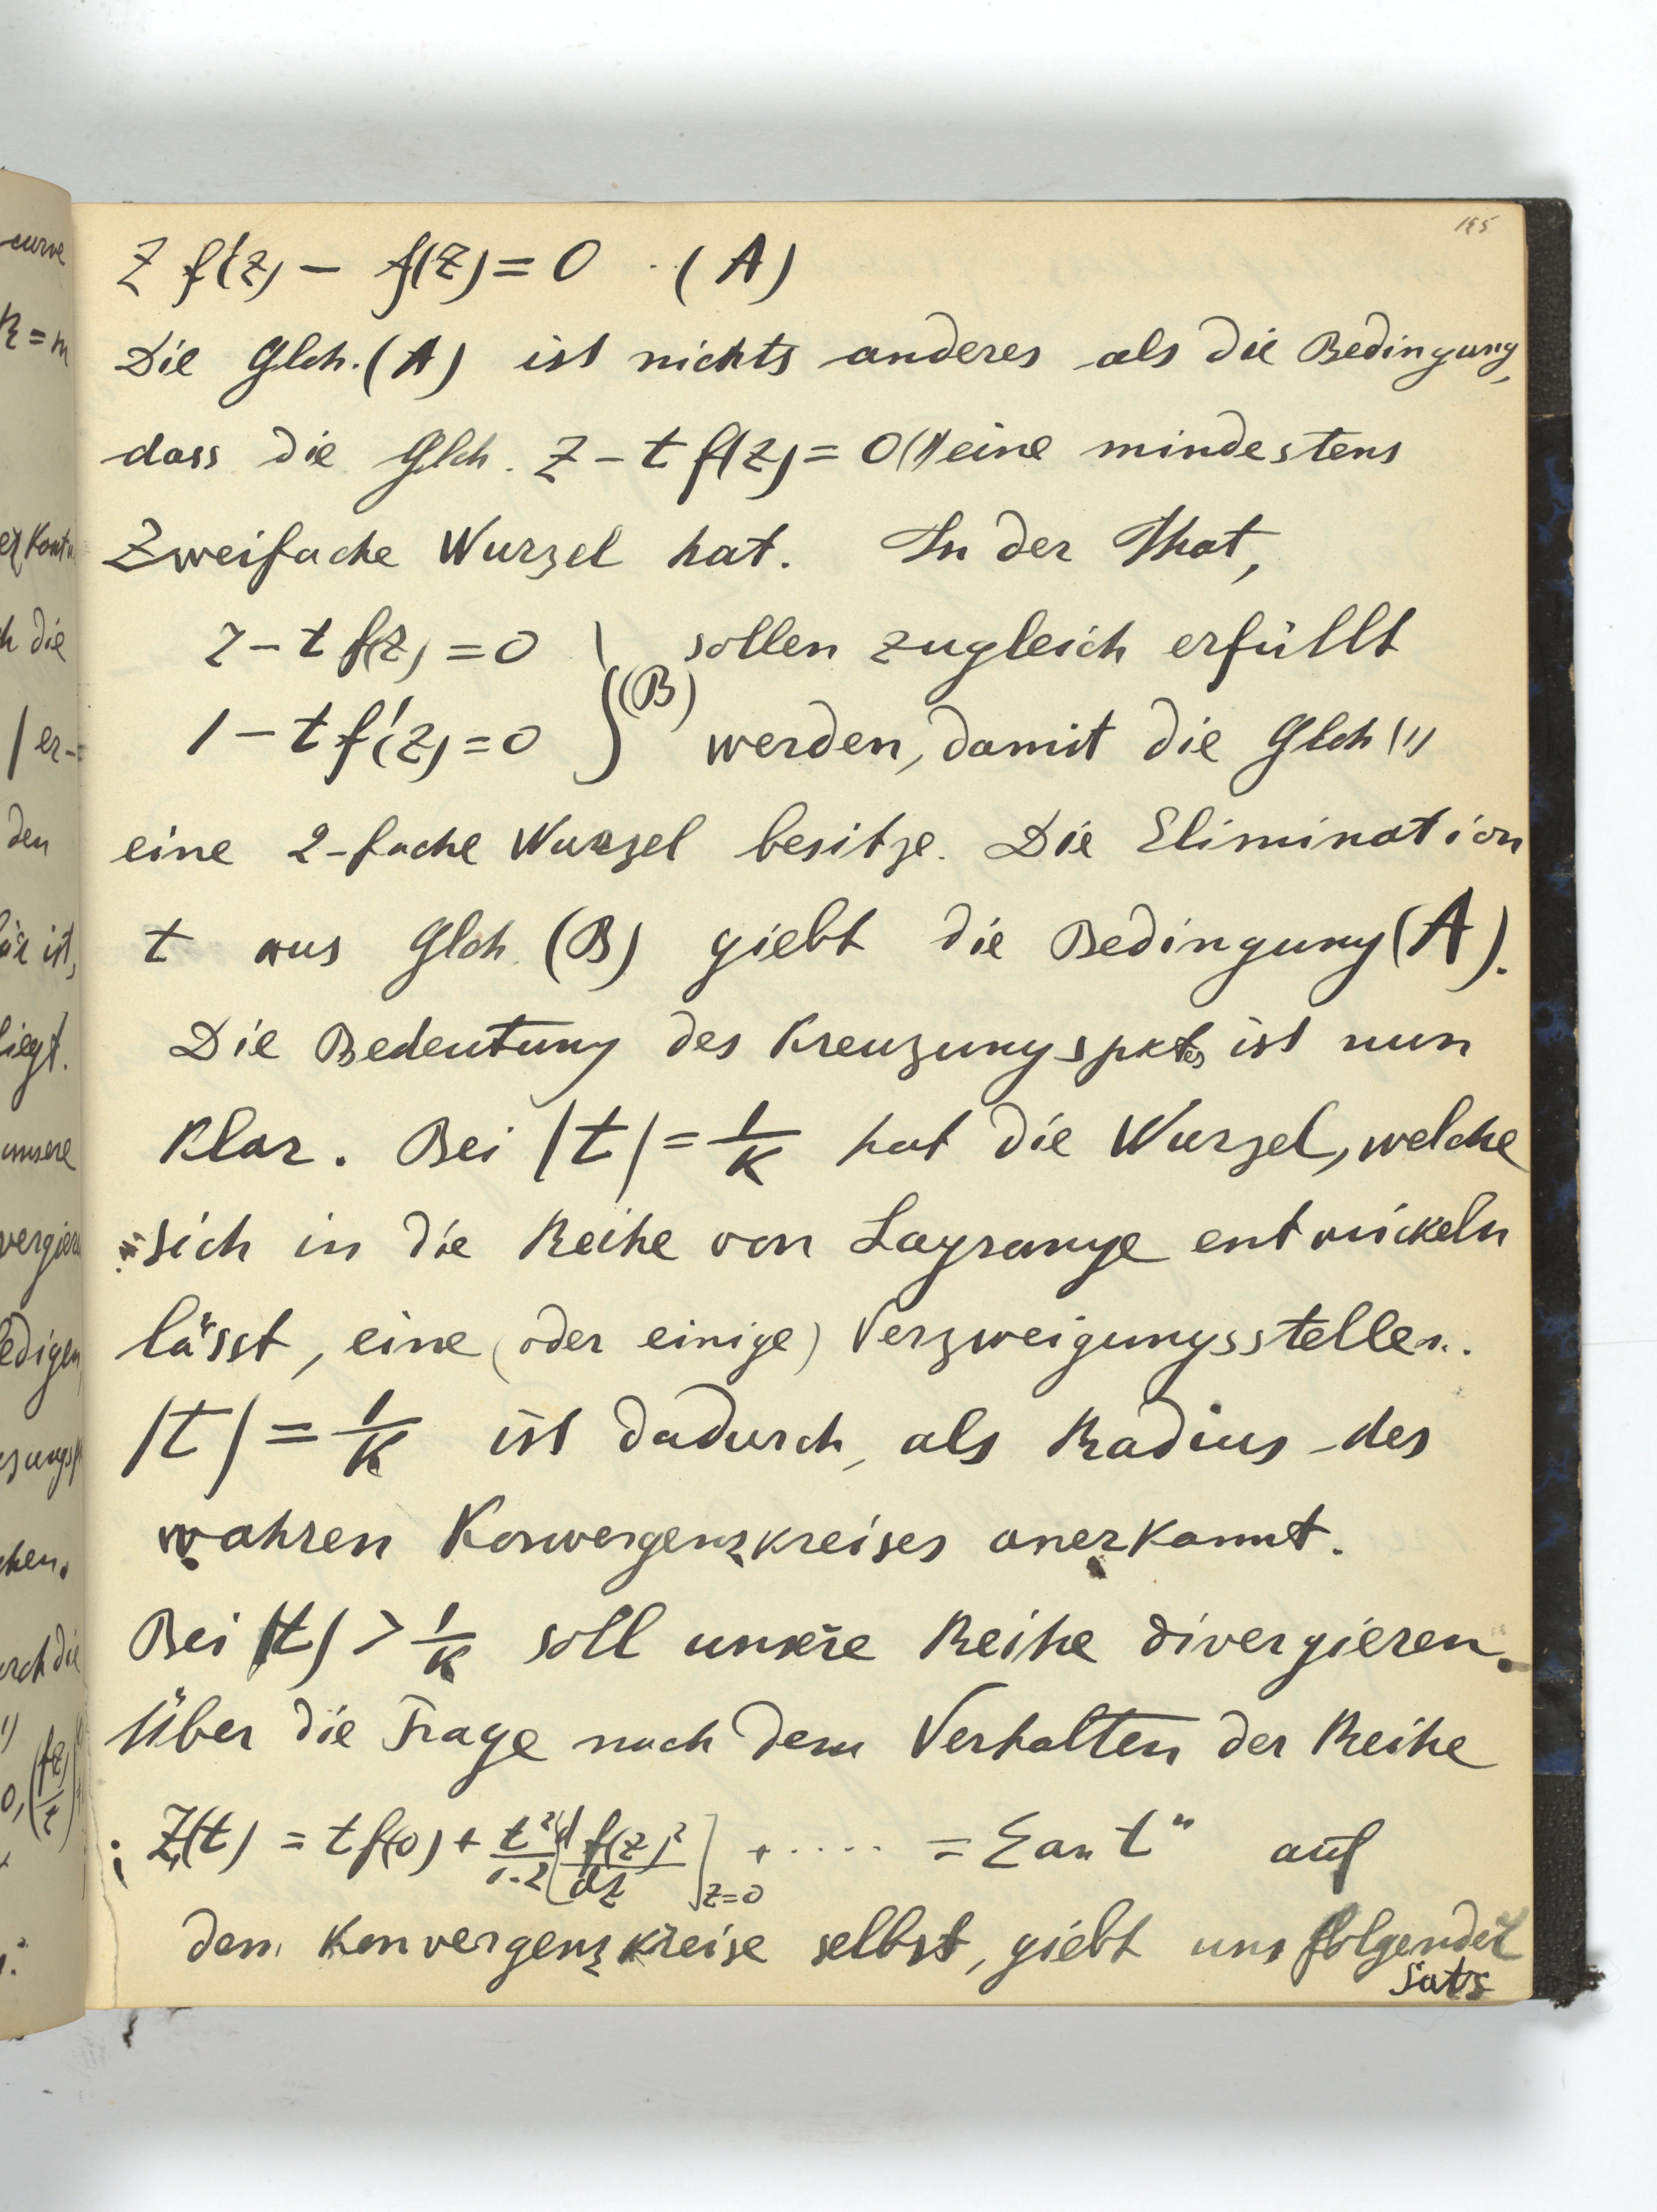 195
z f'(z) – f(z) = 0 (A)
Die Glch. (A) ist nichts anderes als die Bedingung,
dass die Glch. z – t f(z) = 0 (1) eine mindestens
Zweifache Wurzel hat. In der That,
z – t f(z) = 0 } sollen zugleich erfüllt
1 – t f'(z) = 0 } (B) werden, damit die Glch (1)
eine 2-fache Wurzel besitze. Die Elimination
t aus Glch. (B) giebt die Bedingung (A).
Die Bedeutung des Kreuzungspktes ist nun
Klar. Bei |t| = 1/K hat die Wurzel, welche
sich in die Reihe von Lagrange entwickeln
lässt, eine (oder einige) Verzweigungsstellen.
|t| = 1/K ist dadurch, als Radius des
wahren Konvergenzkreises anerkannt.
Bei |t| > 1/K soll unsere Reihe divergieren.
Über die Frage nach dem Verhalten der Reihe
Z(t) = t f(0) + t²/1·2 [d f(z)²/dz]z=0 + ..... = Σ an tⁿ auf
dem Konvergenzkreise selbst, giebt uns folgender
Satz